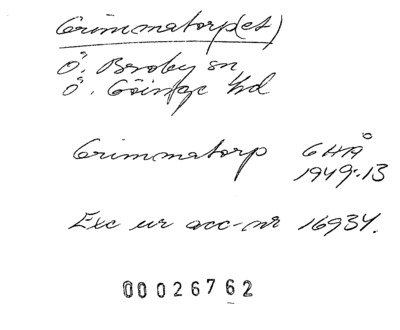 Grimmatorp(et)
Ö. Broby sn
Ö. Göinge hd
Grimmatorp GHÅ
1949:13
Exc ur acc-nr 16934.
00026762